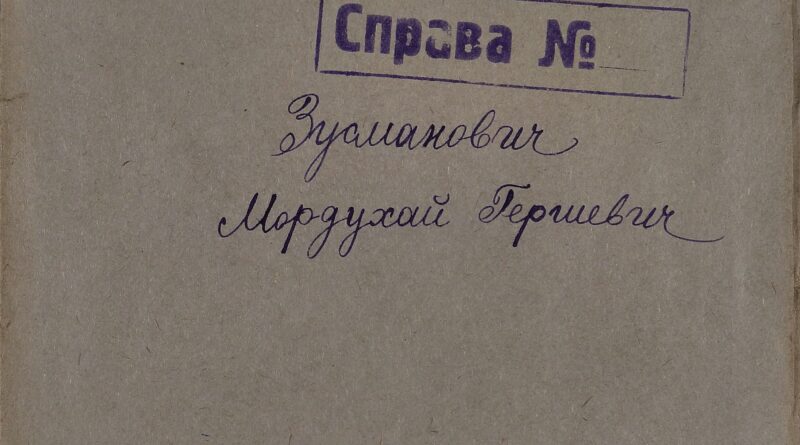 Справа №
Зусманович
Мордухай Гершевич